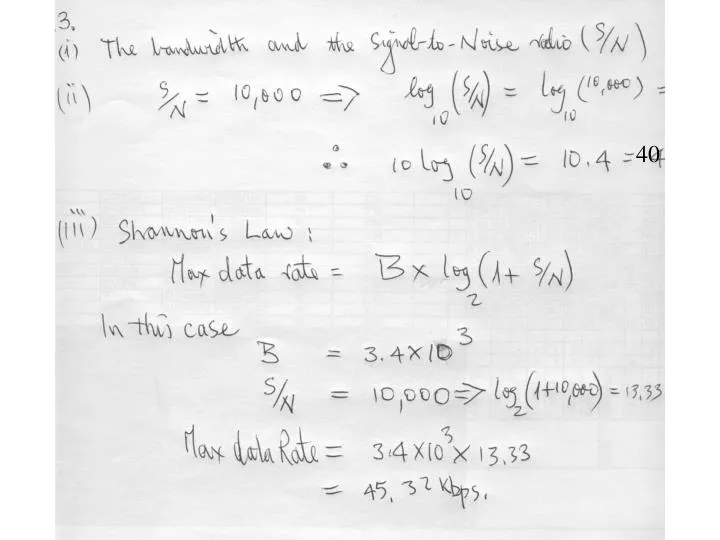 3.
(i) The bandwidth and the Signal-to-Noise ratio (S/N)
(ii) S/N = 10,000 => log10 (S/N) = log10 (10,000) =
∴ 10 log10 (S/N) = 10.4 = 40
(iii) Shannon's Law:
Max data rate = B × log2 (1+ S/N)
In this case
B = 3.4×10^3
S/N = 10,000 => log2 (1+10,000) = 13.33
Max data Rate = 3.4×10^3 × 13.33
= 45.32 Kbps.